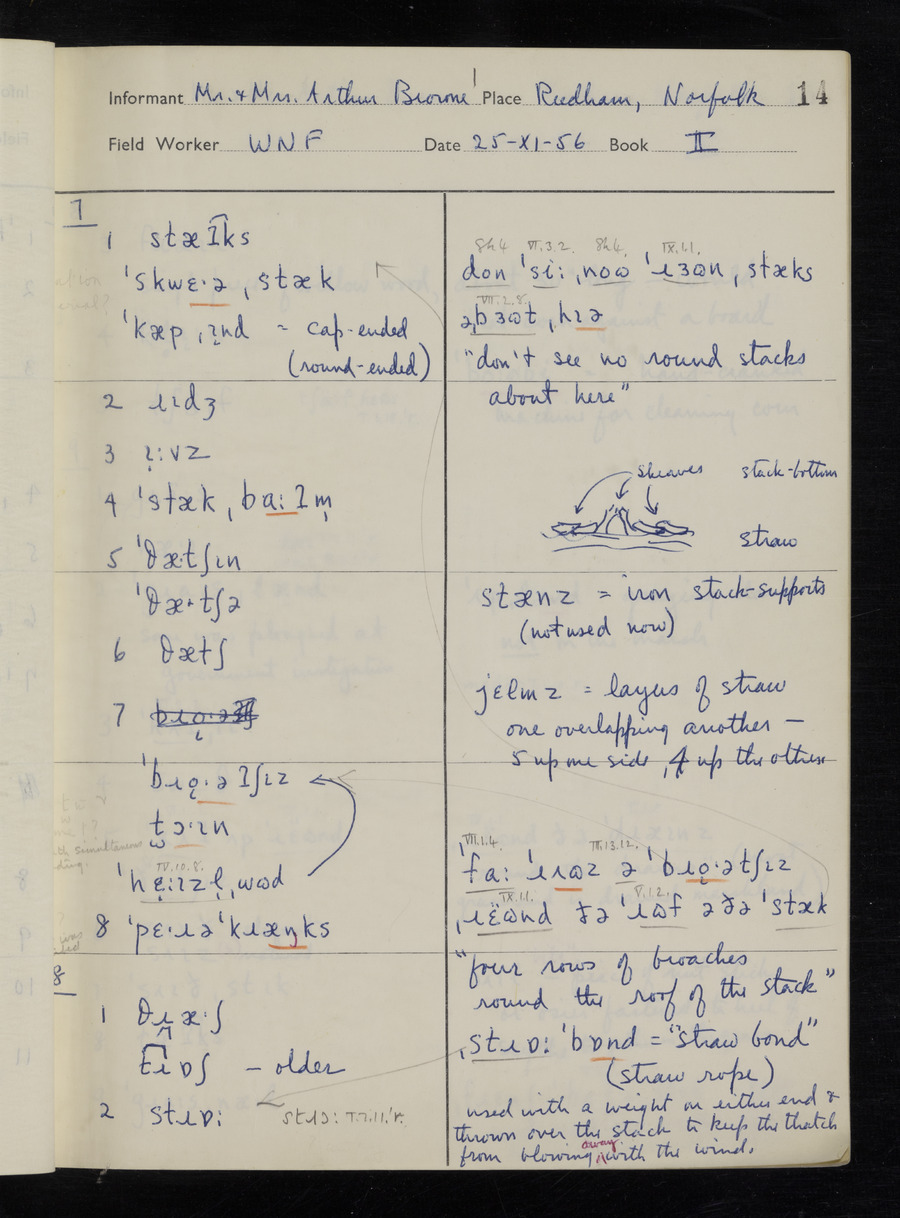 Informant Mr. & Mrs. Arthur Browne Place Reedham, Norfolk 14
Field Worker WNF Date 25-XI-56 Book II
7
1 stæʔks
ˈskwɛ·ə ˌstæk
ˈkæp ˌɪnd = cap-ended
(round-ended)
2 ɹɪdʒ
3 ɪ:vz
4 ˈstæk ˌba:ʔm̩
5 ˈθætʃɪn
ˈθæ·tʃə
6 θætʃ
7
ˈbɹo̜·əʔʃɪz
tɔ·ɪn
IV.10.8.
ˈhɛ:ɪzl̩ ˌwʊd
8 ˈpɛ·ɹəˈkɹæŋks
8
1 θɹæ·ʃ
tɹɒʃ – older
2 stɹɒ:
8h4 VI.3.2. 8h4. IX.1.1.
don ˈsi: ˌnoʊ ˈɹɜʊn ˌstæks
VII.2.8.
əˌbɜʊt ˌhɪə
"don't see no round stacks
about here"
sheaves stack-bottom
straw
stænz = iron stack-supports
(not used now)
jɛlmz = layers of straw
one overlapping another –
5 up one side, 4 up the other
VII.1.4. III.13.12.
ˈfa: ˈɹʌʊz ə ˈbɹo̜·ətʃɪz
IX.1.1. V.1.2.
ˌɹɛ̈ʊnd ðə ˈɹʊf əðə ˈstæk
"four rows of broaches
round the roof of the stack"
ˌstɹɒ: ˈbɒnd = "straw bond"
(straw rope)
used with a weight on either end &
thrown over the stack to keep the thatch
from blowing away with the wind.